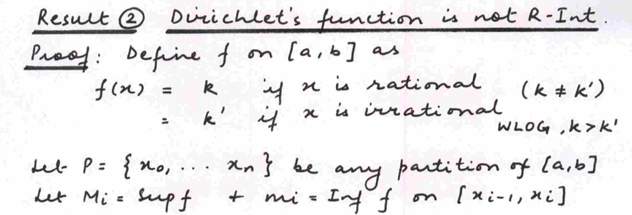 Result ② Dirichlet's function is not R-Int.
Proof: Define f on [a,b] as
f(x) = k if x is rational (k ≠ k')
= k' if x is irrational
WLOG, k>k'
Let P = {x₀, ... xₙ} be any partition of [a,b]
Let Mi = Sup f + mi = Inf f on [xi-1, xi]